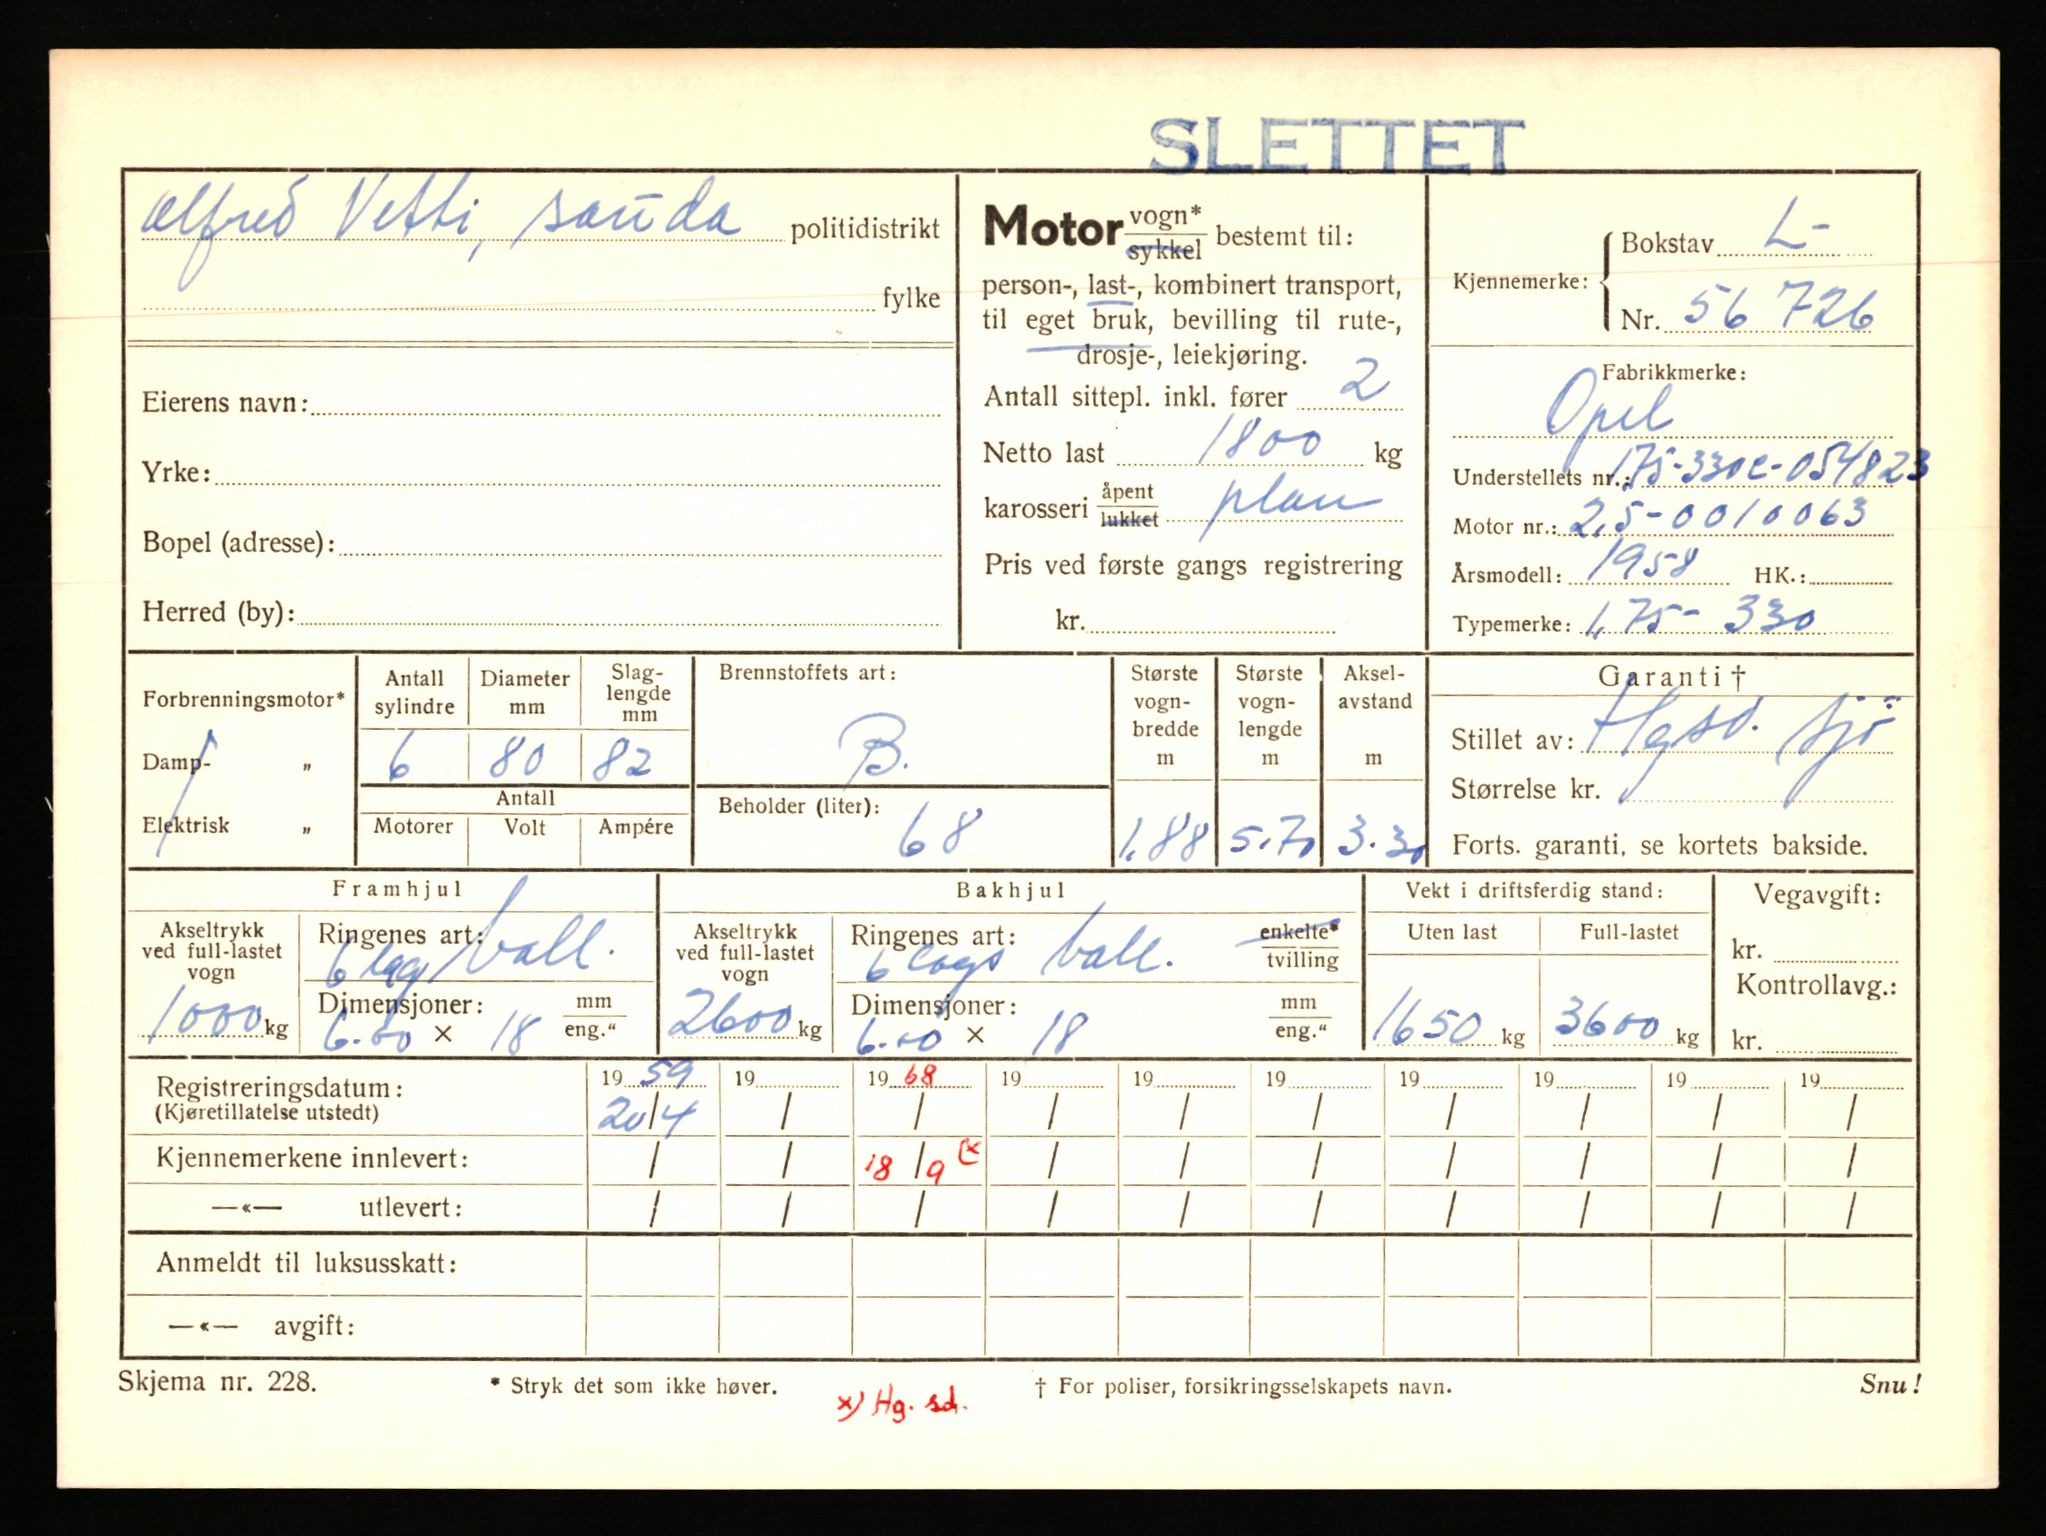 SLETTET
Alfred Vetti, Sauda politidistrikt
fylke
Eierens navn:
Yrke:
Bopel (adresse):
Herred (by):
Motor vogn* sykkel bestemt til:
person-, last-, kombinert transport,
til eget bruk, bevilling til rute-,
drosje-, leiekjøring.
Antall sittepl. inkl. fører 2
Netto last 1800 kg
karosseri åpent lukket plan
Pris ved første gangs registrering
kr.
Kjennemerke: Bokstav L-
Nr. 56726
Fabrikkmerke:
Opel
Understellets nr.: 175-330E-054823
Motor nr.: 2,5-0010063
Årsmodell: 1958 HK.:
Typemerke: 1,75-330
Forbrenningsmotor*
Damp- „
Elektrisk „
Antall sylindre Diameter mm Slag-lengde mm
6 80 82
Antall
Motorer Volt Ampére
Brennstoffets art:
B.
Beholder (liter):
68
Største vogn-bredde m Største vogn-lengde m Aksel-avstand m
1,88 5.70 3.30
Garanti †
Stillet av: Hgsd. Sjö
Størrelse kr.
Forts. garanti, se kortets bakside.
Framhjul
Akseltrykk ved full-lastet vogn
1000 kg
Ringenes art:
6 lag ball.
Dimensjoner: mm eng."
6.00 × 18
Bakhjul
Akseltrykk ved full-lastet vogn
2600 kg
Ringenes art: enkelte* tvilling
6 lags ball.
Dimensjoner: mm eng."
6.00 × 18
Vekt i driftsferdig stand:
Uten last Full-lastet
1650 kg 3600 kg
Vegavgift:
kr.
Kontrollavg.:
kr.
Registreringsdatum: 19 59 19 19 68 19 19 19 19 19 19 19
(Kjøretillatelse utstedt) 20/4 / / / / / / / / /
Kjennemerkene innlevert: / / 18/9 (x / / / / / / /
—«— utlevert: / / / / / / / / / /
Anmeldt til luksusskatt:
—«— avgift:
Skjema nr. 228. * Stryk det som ikke høver. † For poliser, forsikringsselskapets navn. Snu!
x) Hg. sd.